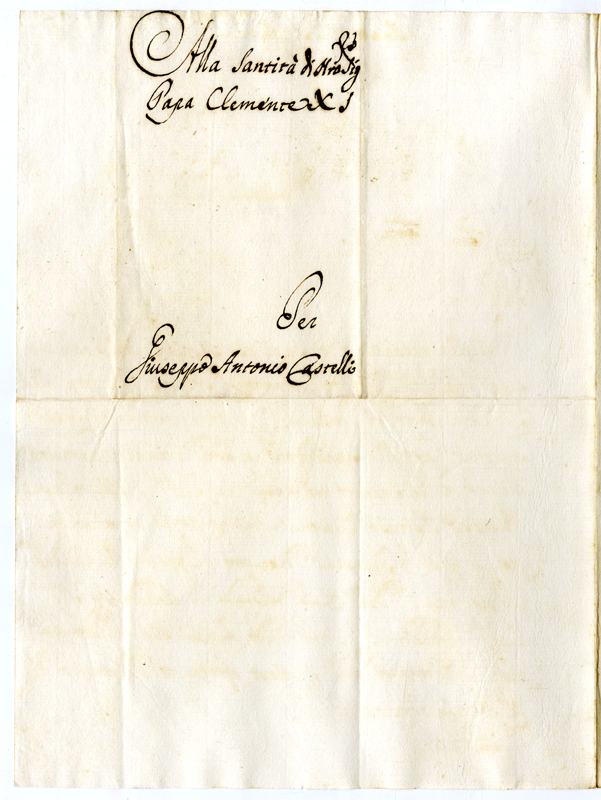 Alla Santità di Nro Sig.re
Papa Clemente XI
Per
Giuseppe Antonio Castelli